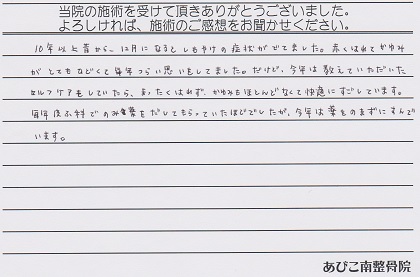 当院の施術を受けて頂きありがとうございました。
よろしければ、施術のご感想をお聞かせください。
10年以上昔から12月になるとしもやけの症状がでてました。赤くはれてかゆみ
がとてもひどくて毎年つらい思いをしてました。だけど、今年は教えていただいた
セルフケアをしていたら、まったくはれず、かゆみもほとんどなくて快適にすごしています。
毎年皮ふ科でのみ薬をだしてもらっていたほどでしたが、今年は薬をのまずにすんで
います。
あびこ南整骨院